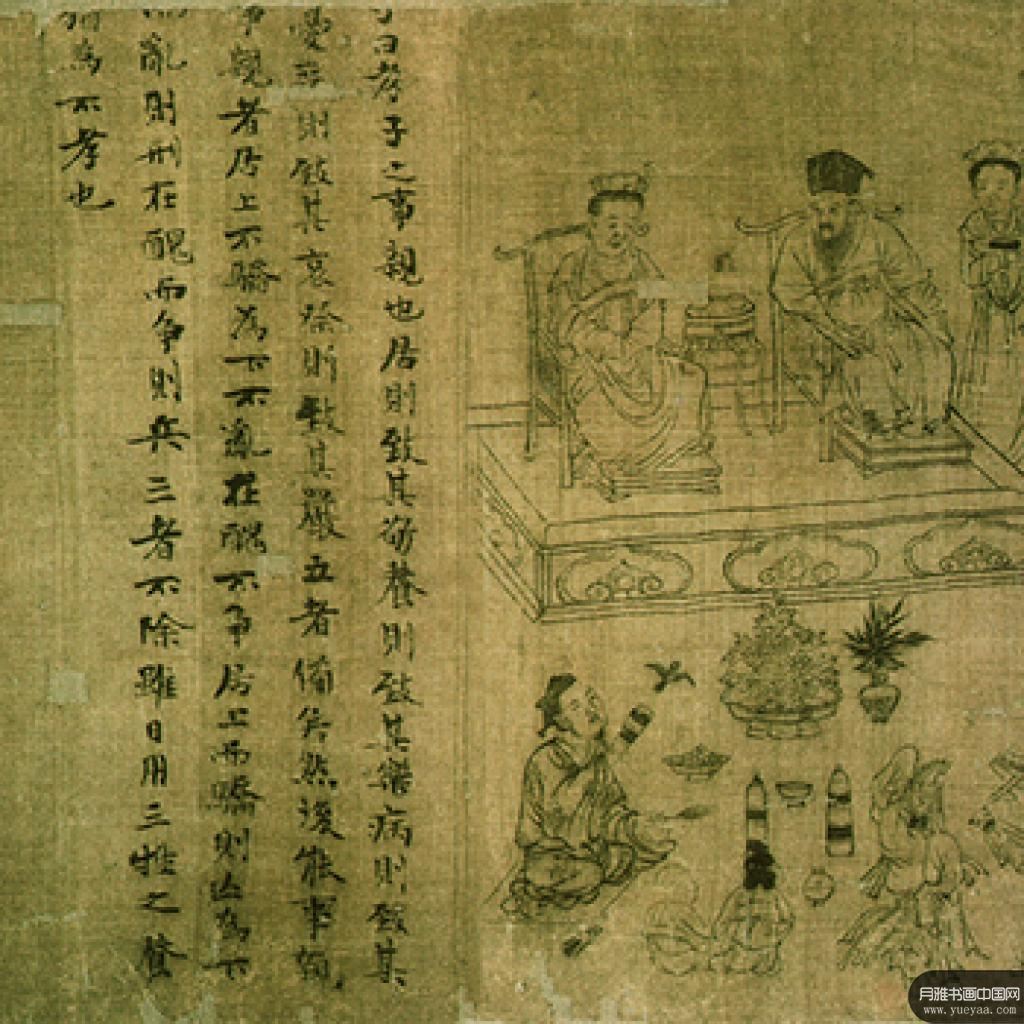 子曰孝子之事親也居則致其敬養則致其樂病則致其
憂喪則致其哀祭則致其嚴五者備矣然後能事親
事親者居上不驕為下不亂在醜不爭居上而驕則亡為下
而亂則刑在醜而爭則兵三者不除雖日用三牲之養
猶為不孝也
月雅书画中国网
www.yueyaa.com